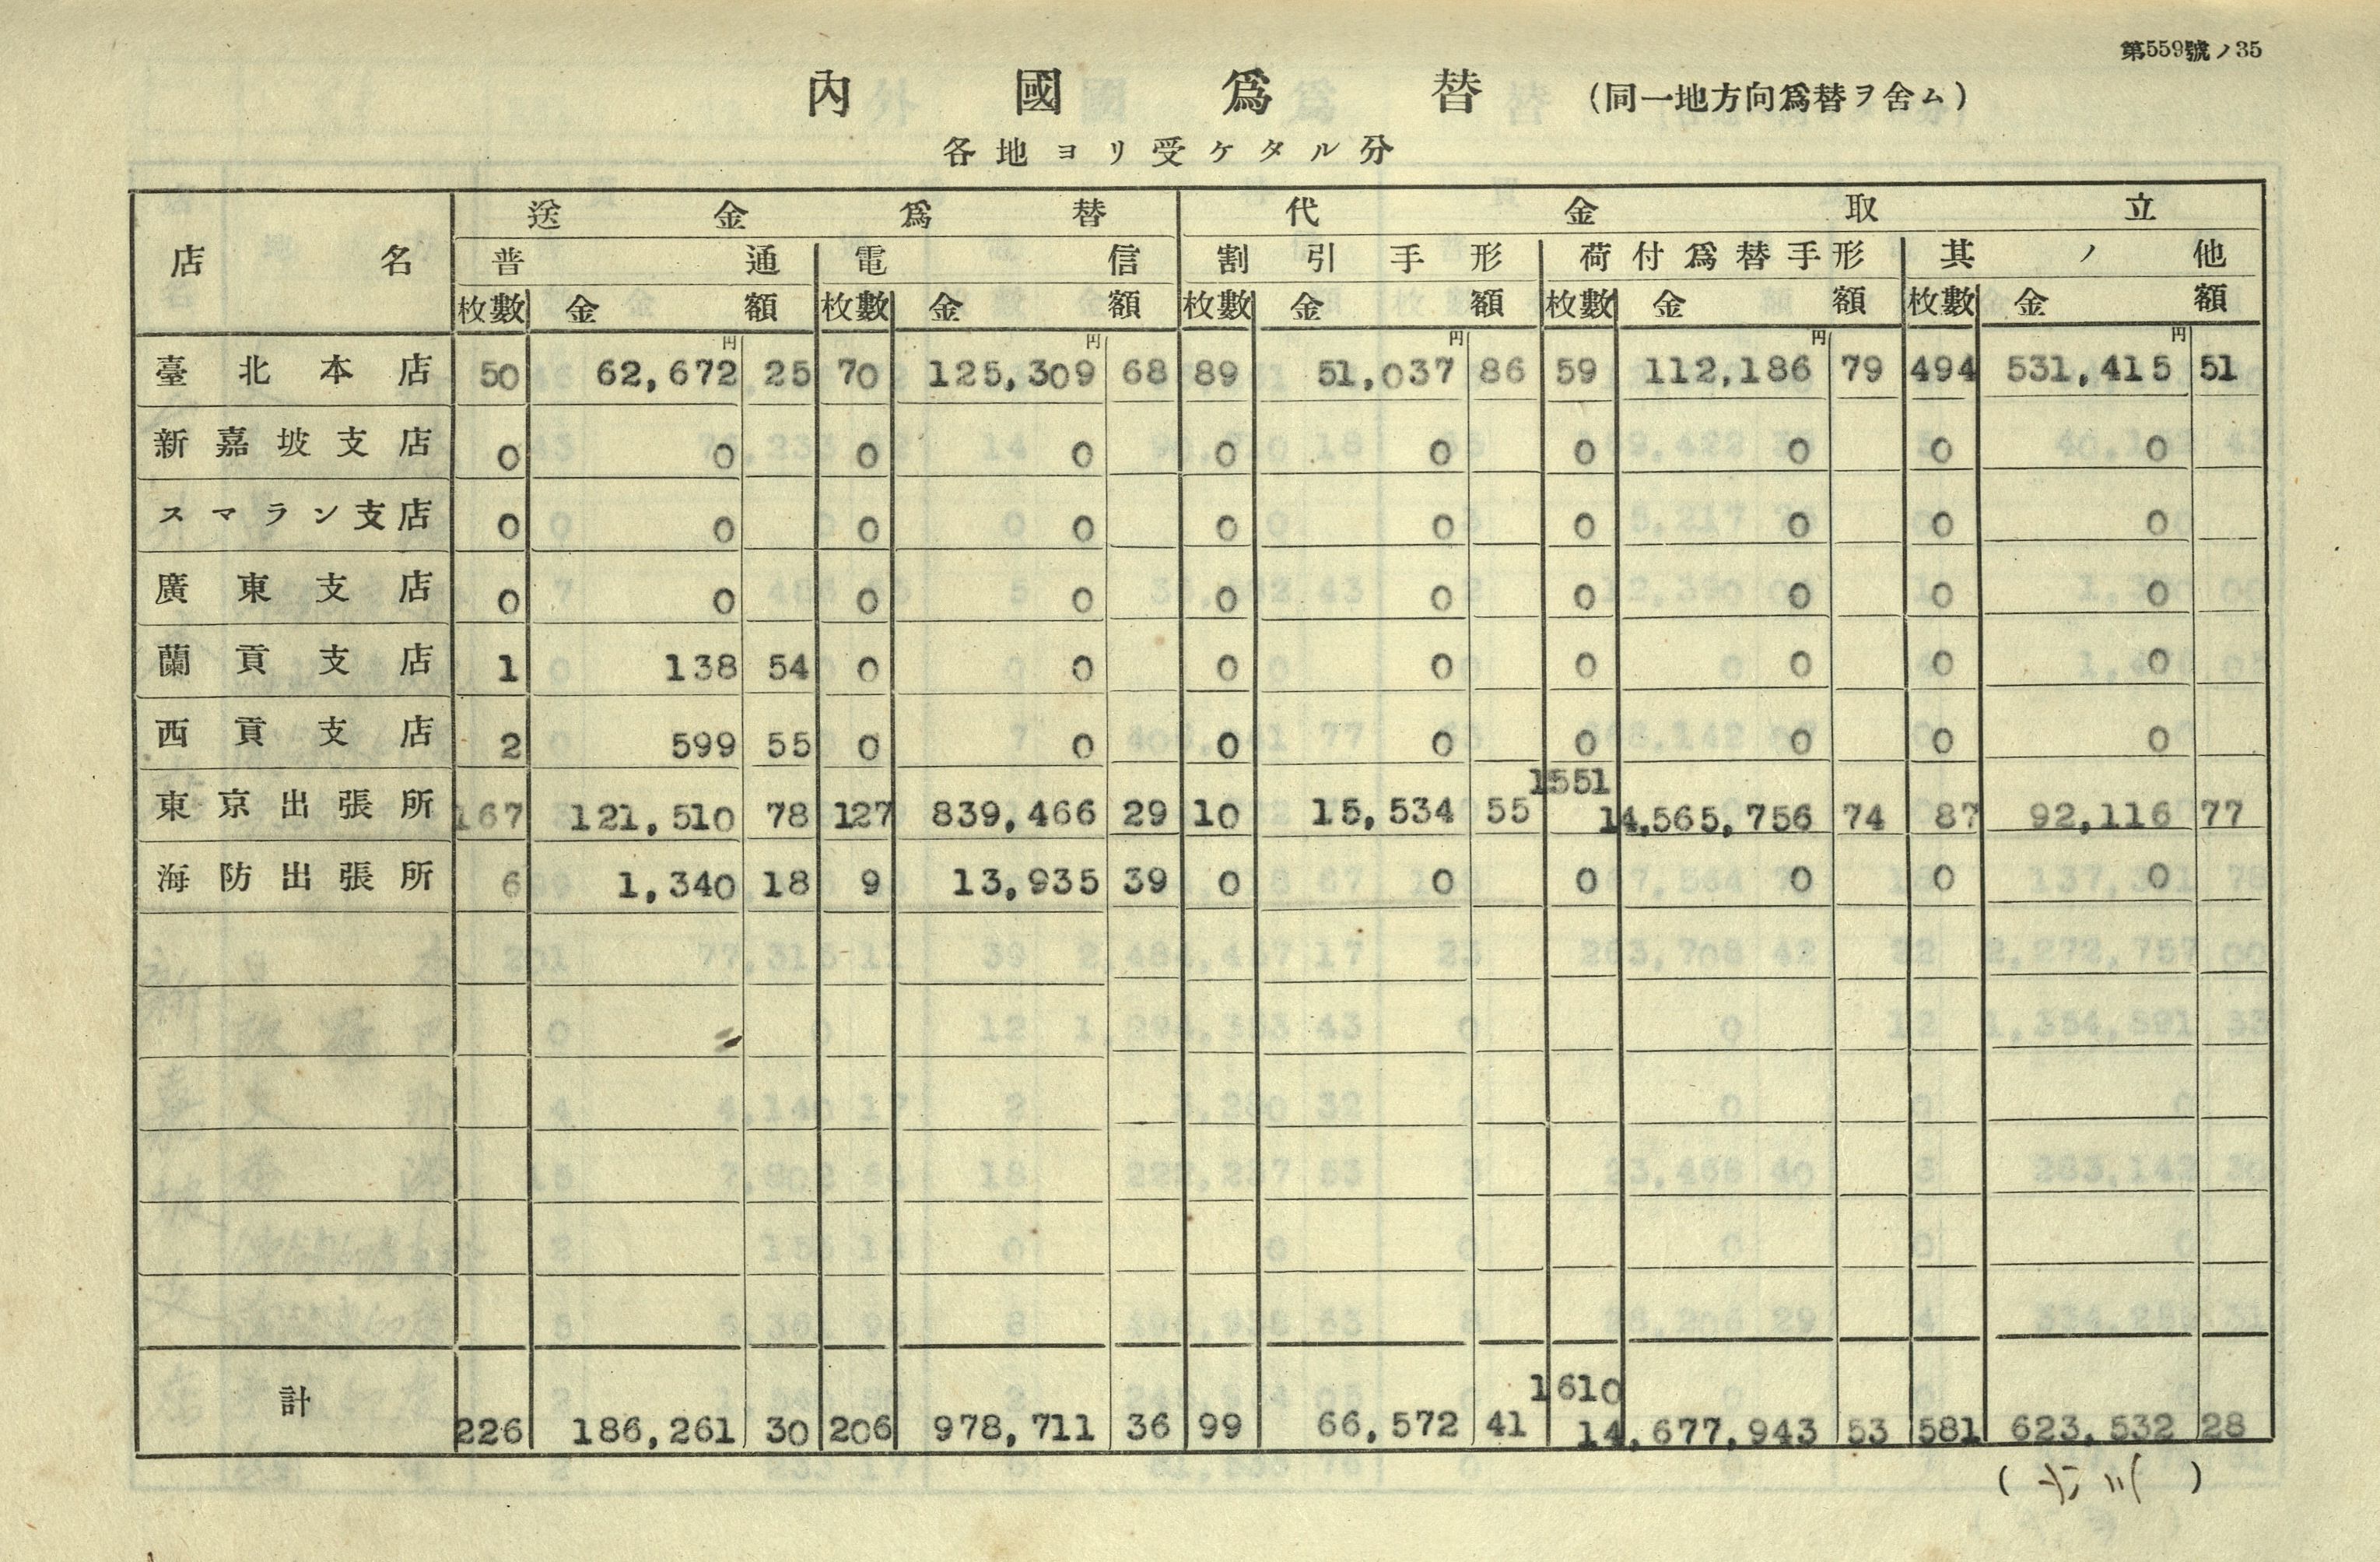 第559號ノ35
內國爲替 (同一地方向爲替ヲ含ム)
各地ヨリ受ケタル分
店名 送金爲替 代金取立
普通 電信 割引手形 荷付爲替手形 其ノ他
枚數 金額 枚數 金額 枚數 金額 枚數 金額 枚數 金額
円 円 円 円 円
臺北本店 50 62,672 25 70 125,309 68 89 51,037 86 59 112,186 79 494 531,415 51
新嘉坡支店 0 0 0 0 0 0 0 0 0 0
スマラン支店 0 0 0 0 0 0 0 0 0 0
廣東支店 0 0 0 0 0 0 0 0 0 0
蘭貢支店 1 138 54 0 0 0 0 0 0 0 0
西貢支店 2 599 55 0 0 0 0 0 0 0 0
東京出張所 167 121,510 78 127 839,466 29 10 15,534 55 1551 14,565,756 74 87 92,116 77
海防出張所 6 1,340 18 9 13,935 39 0 0 0 0 0 0
計 226 186,261 30 206 978,711 36 99 66,572 41 1610 14,677,943 53 581 623,532 28